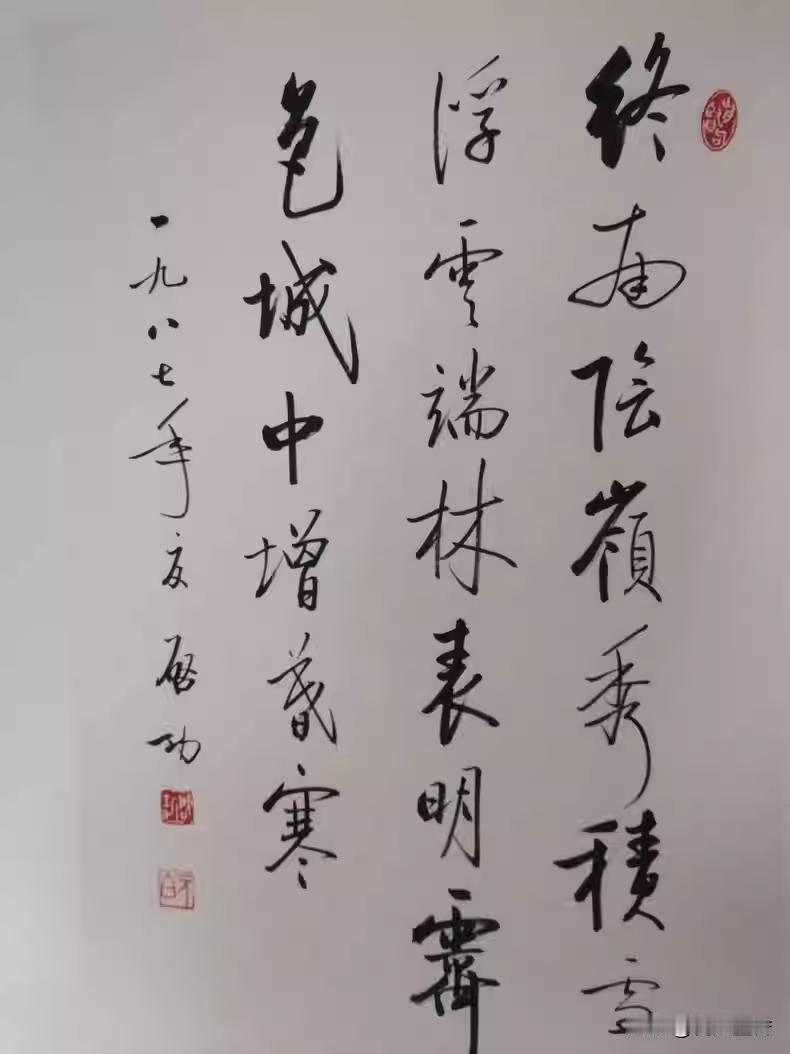 終南陰嶺秀積雪
浮雲端林表明霽
色城中增暮寒
一九八七年夏 啟功